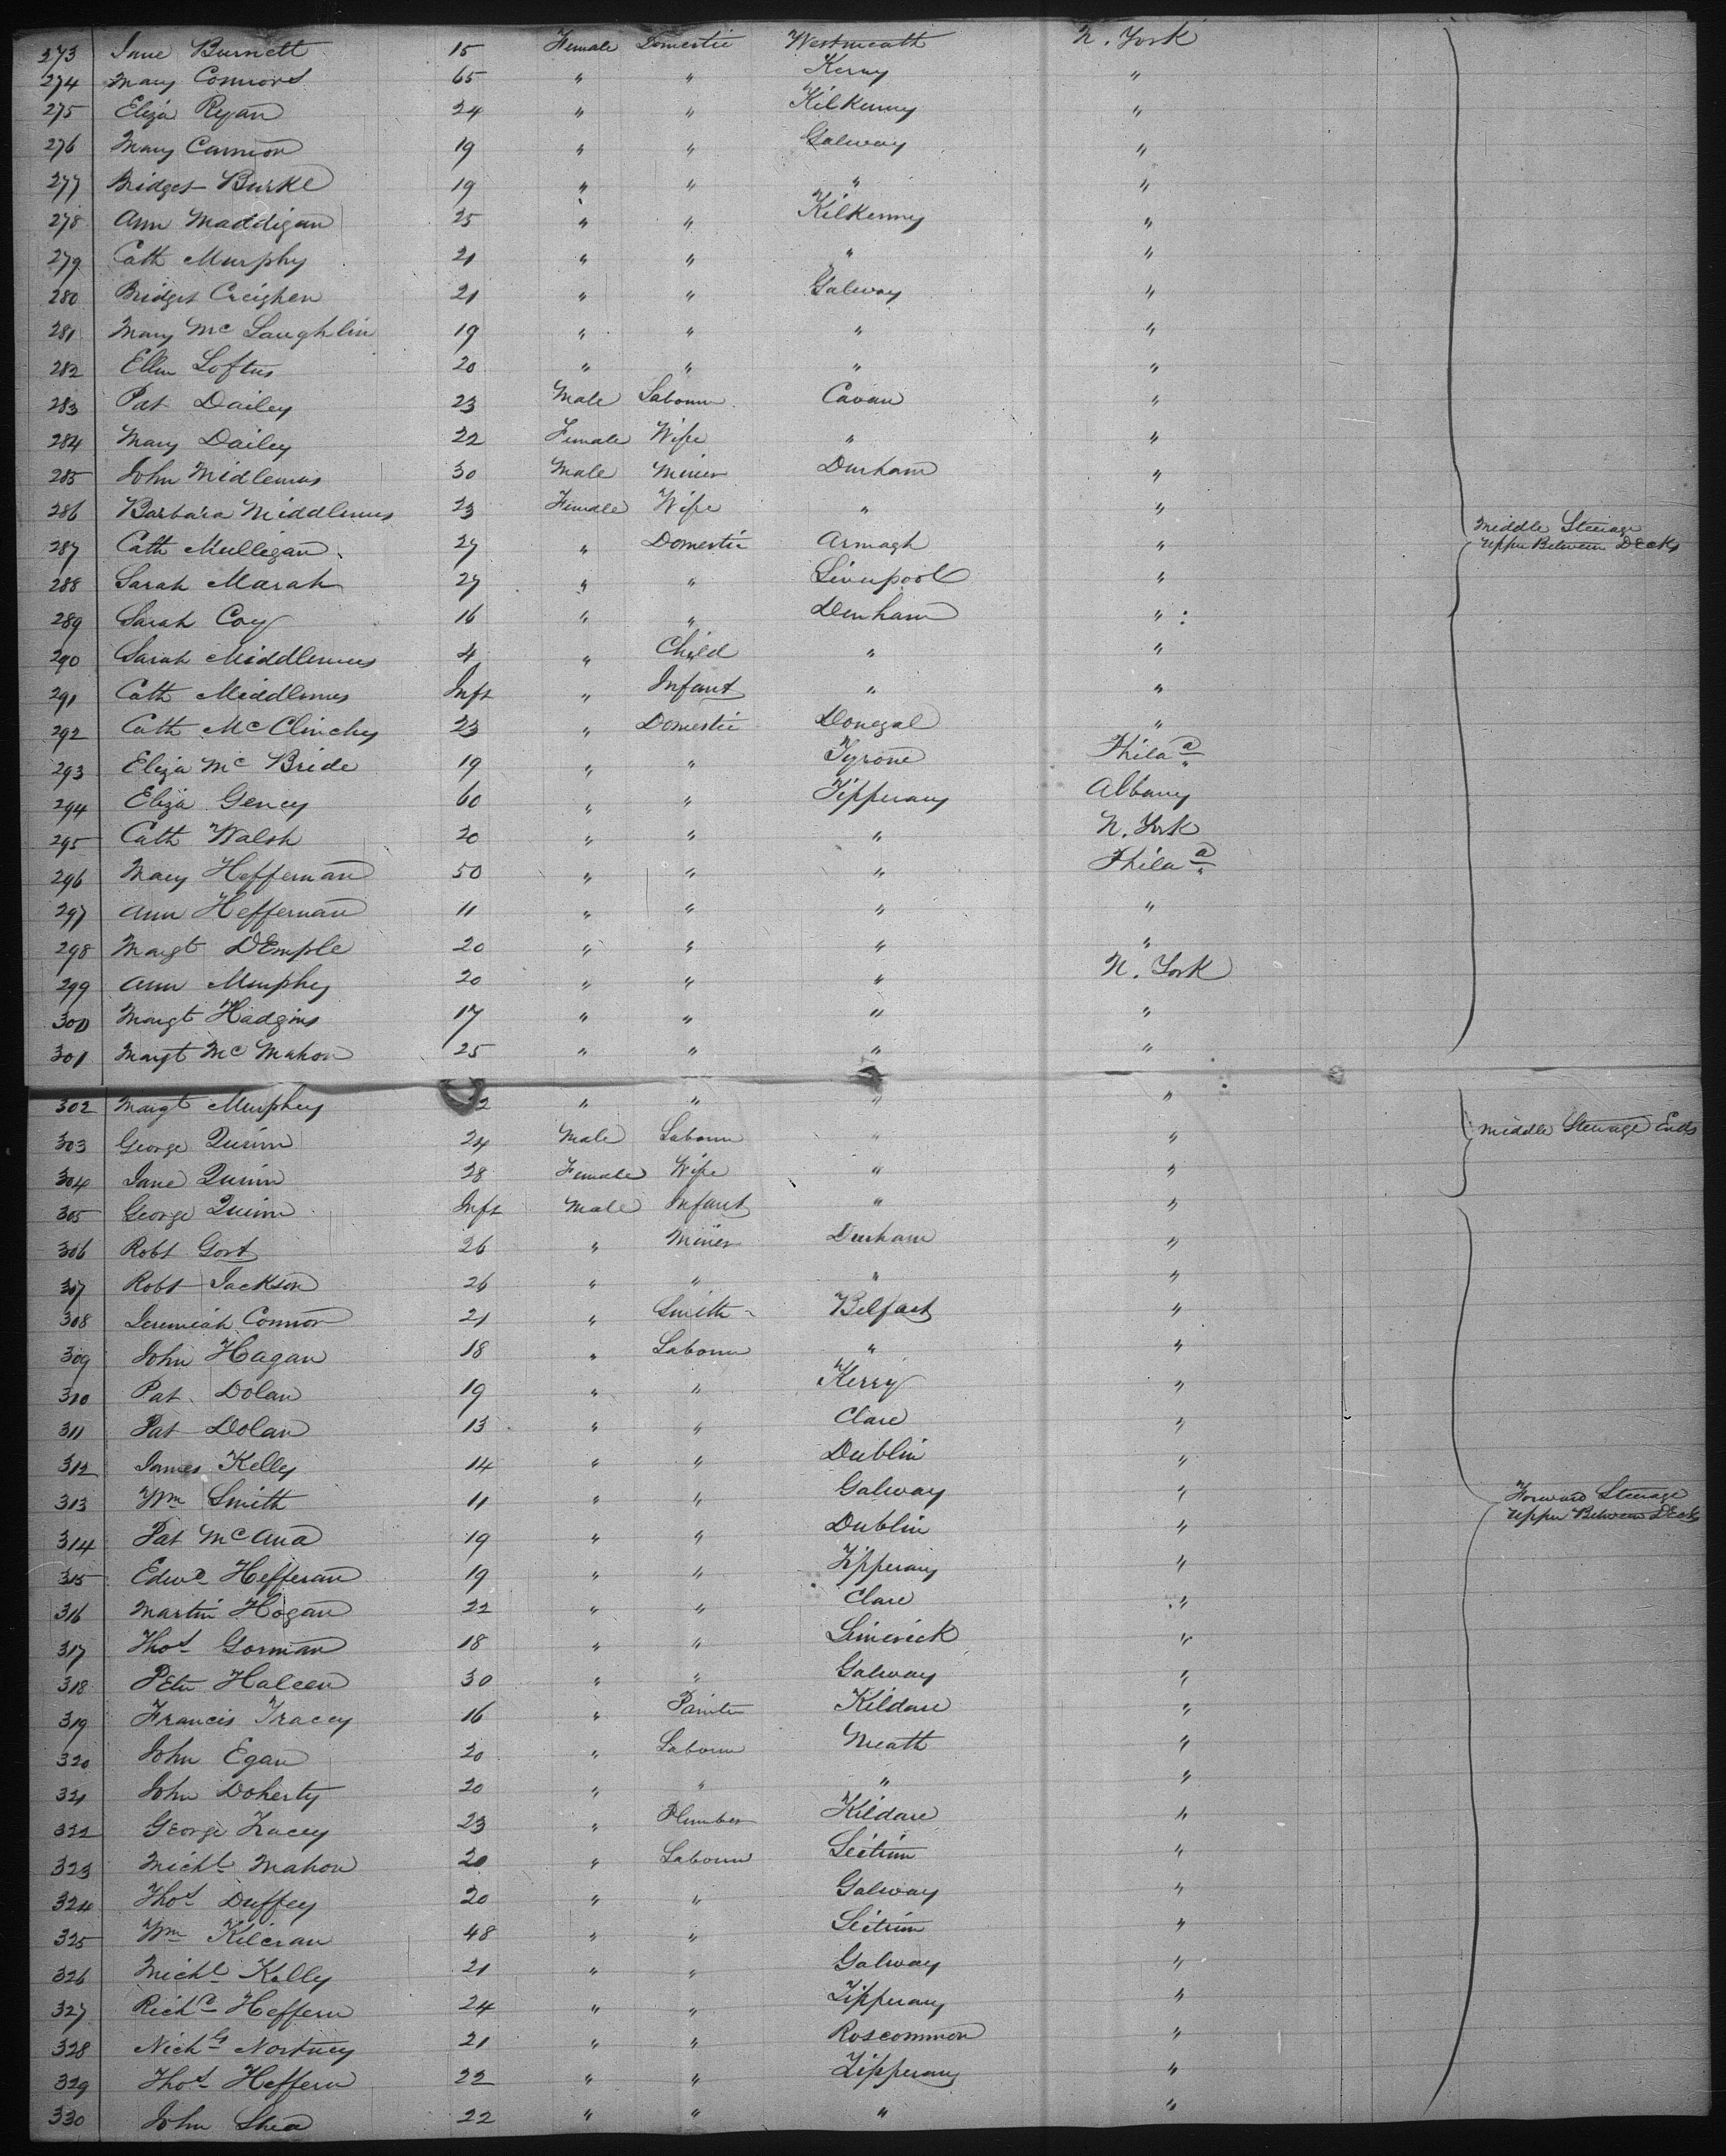 273 Jane Burnett 15 Female Domestic Westmeath N. York
274 Mary Connors 65 " " Kerry "
275 Eliza Ryan 24 " " Kilkenny "
276 Mary Cannon 19 " " Galway "
277 Bridget Burke 19 " " " "
278 Ann Maddigan 25 " " Kilkenny "
279 Cath Murphy 21 " " " "
280 Bridget Creighen 21 " " Galway "
281 Mary Mc Laughlin 19 " " " "
282 Ellen Loftus 20 " " " "
283 Pat Dailey 23 Male Labourer Cavan "
284 Mary Dailey 22 Female Wife " "
285 John Midlemus 30 Male Miner Durham "
286 Barbara Middlemus 23 Female Wife " "
Middle Steerage
287 Cath Mulligan 27 " Domestic Armagh " Upper Between Decks
288 Sarah Marah 27 " " Liverpool "
289 Sarah Coy 16 " " Durham "
290 Sarah Middlemus 4 " Child " "
291 Cath Middlemus Inft " Infant " "
292 Cath McClinchy 23 " Domestic Donegal "
293 Eliza Mc Bride 19 " " Tyrone Phila a
294 Eliza Gency 60 " " Tipperary Albany
295 Cath Walsh 20 " " " N. York
296 Mary Heffernan 50 " " " Phila a
297 Ann Heffernan 11 " " " "
298 Margt DEmple 20 " " " "
299 Ann Murphy 20 " " " N. York
300 Margt Hadgins 17 " " " "
301 Margt Mc Mahon 25 " " " "
302 Margt Murphy 2 " " " "
303 George Quinn 24 Male Labourer " " Middle Steerage Ends
304 Jane Quinn 28 Female Wife " "
305 George Quinn Inft Male Infant " "
306 Robt Gort 26 " Miner Durham "
307 Robt Jackson 26 " " " "
308 Jeremiah Connor 21 " Smith Belfast "
309 John Hagan 18 " Labourer " "
310 Pat Dolan 19 " " Kerry "
311 Pat Dolan 13 " " Clare "
312 James Kelly 14 " " Dublin "
313 Wm Smith 11 " " Galway " Forward Steerage
Upper Between Decks
314 Pat McAna 19 " " Dublin "
315 Edwd Hefferan 19 " " Tipperary "
316 Martin Hogan 22 " " Clare "
317 Thos Gorman 18 " " Limerick "
318 Peter Haleen 30 " " Galway "
319 Francis Tracey 16 " Painter Kildare "
320 John Egan 20 " Labourer Meath "
321 John Doherty 20 " " " "
322 George Lacey 23 " Plumber Kildare "
323 Michl Mahon 20 " Labourer Leitrim "
324 Thos Duffey 20 " " Galway "
325 Wm Kilcran 48 " " Leitrim "
326 Michl Kelly 21 " " Galway "
327 Richd Heffern 24 " " Tipperary "
328 Nichls Nortney 21 " " Roscommon "
329 Thos Heffern 22 " " Tipperary "
330 John Shea 22 " " " "